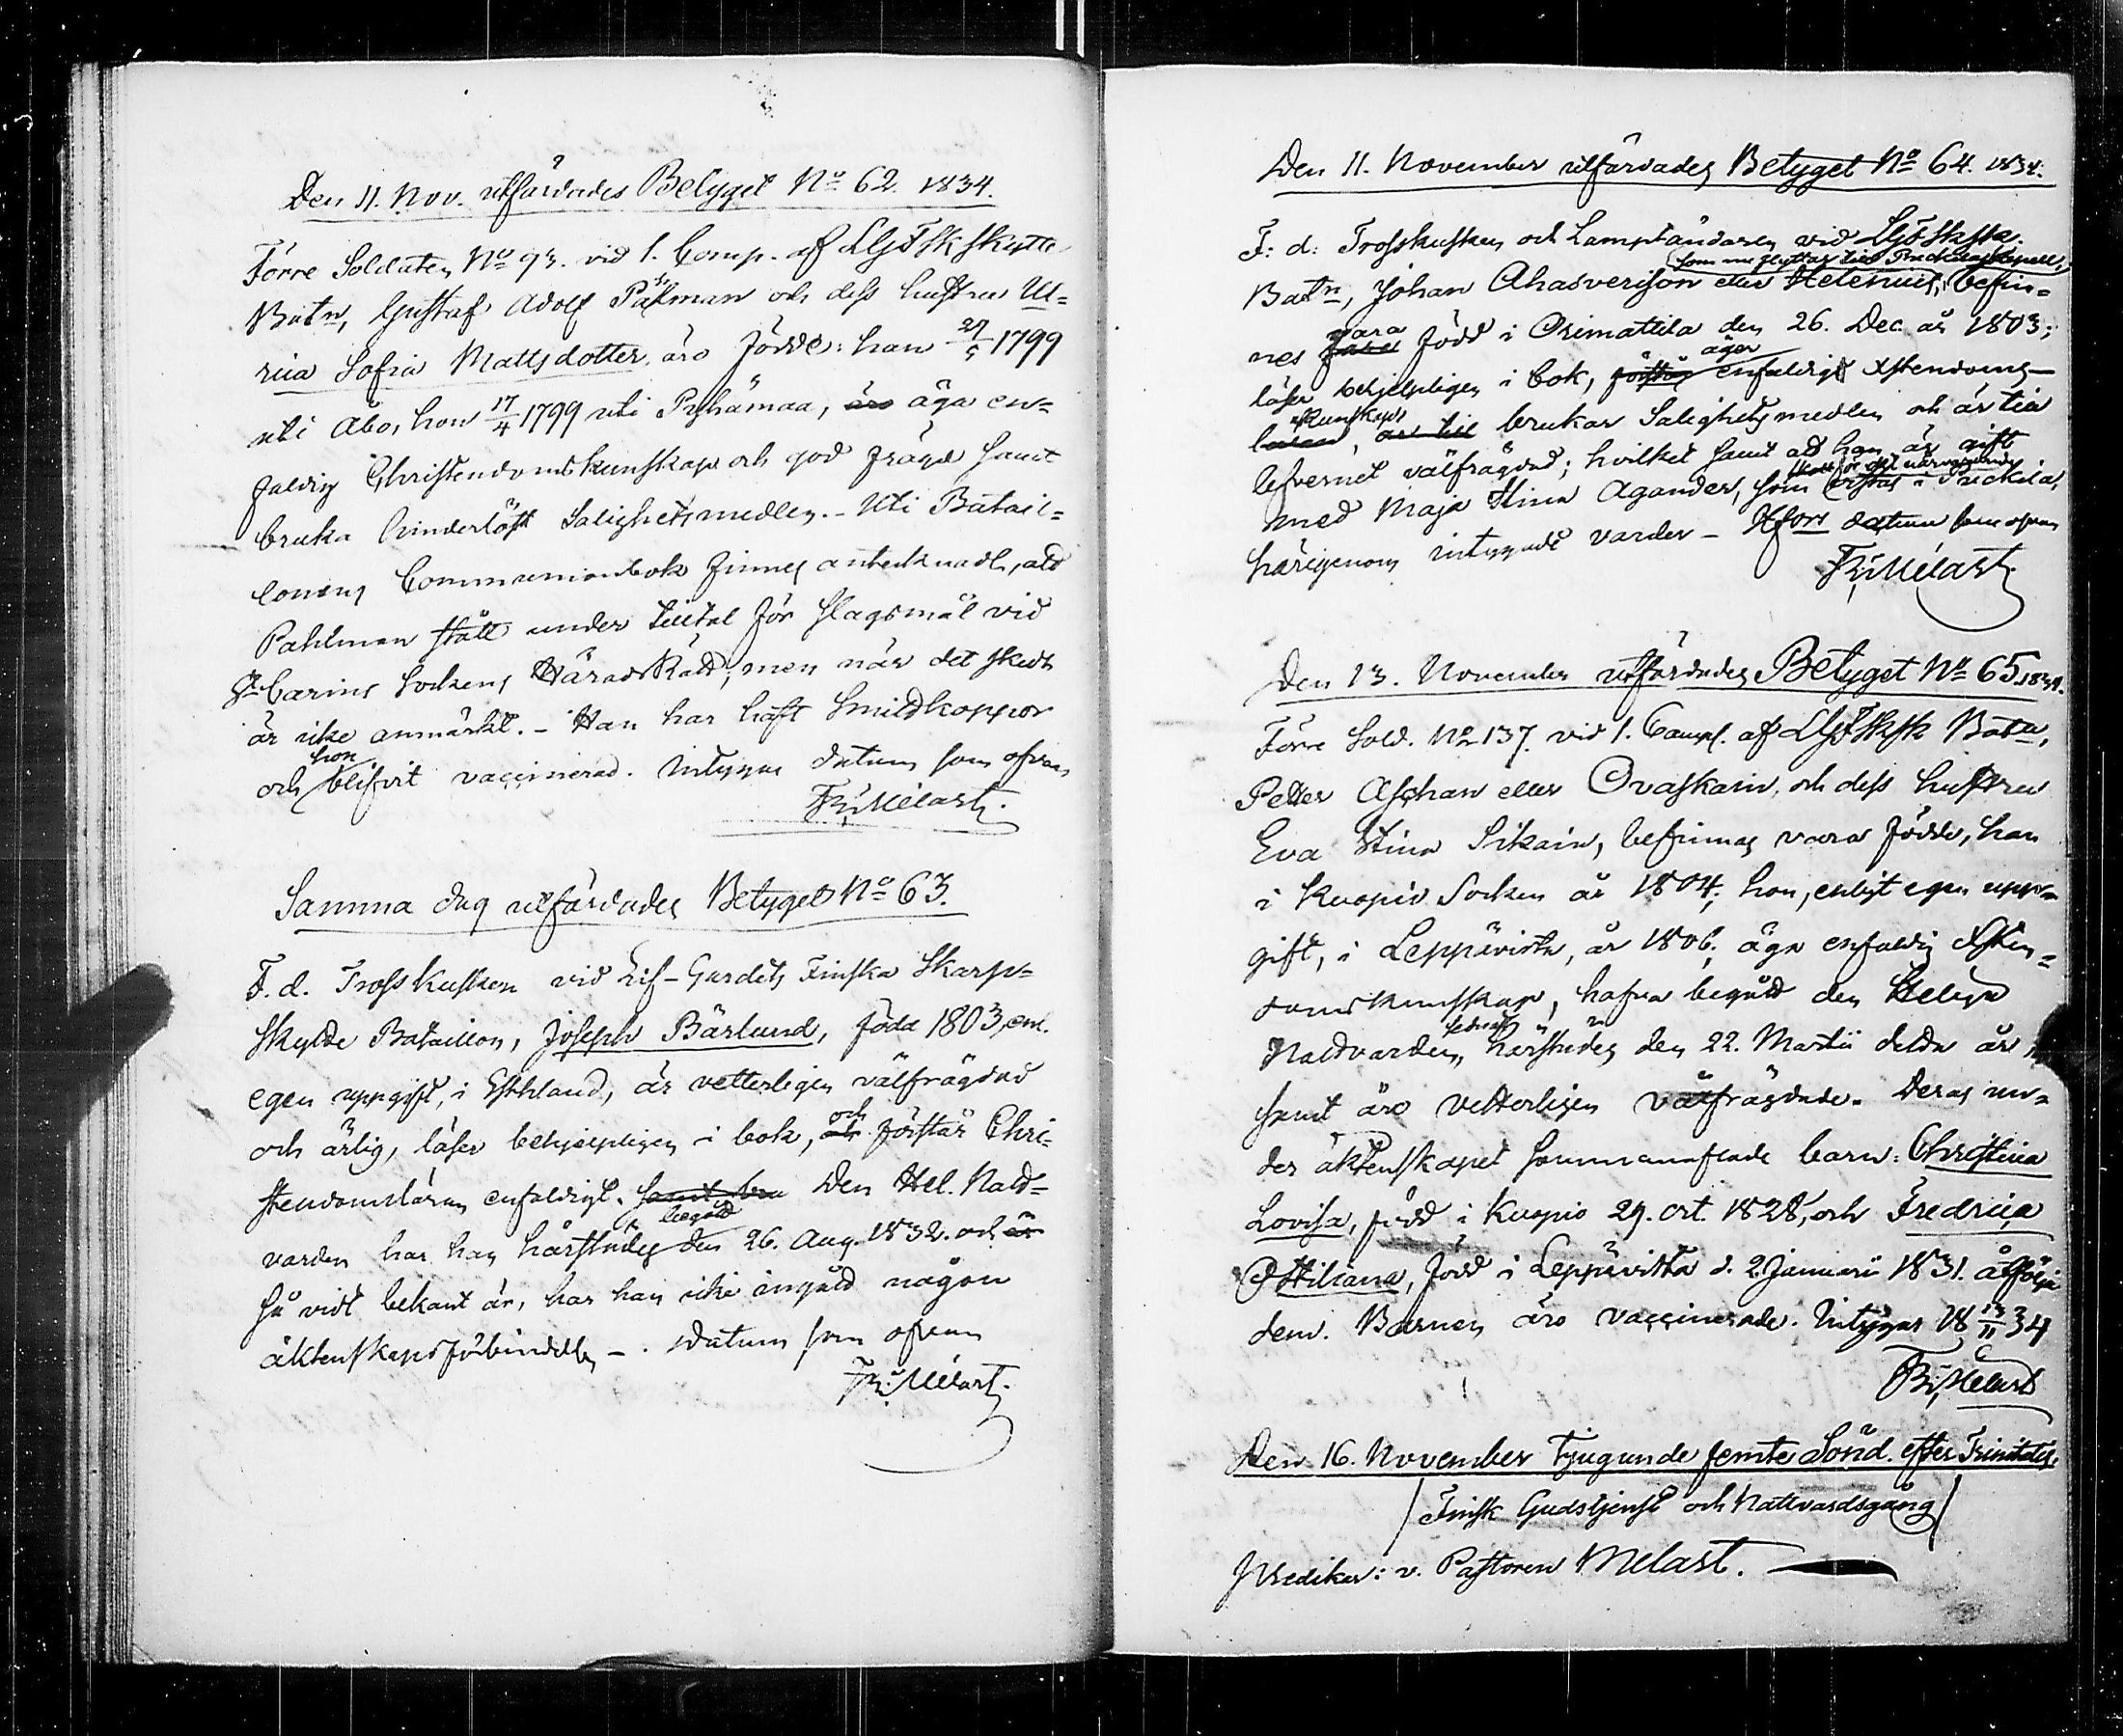 Den 11. Nov. utfärdades Betyget No 62. 1834.
Förre Soldaten No 93. vid 1. Comp. af LGFSkskytte
Batn, Gustaf Adolf Pahlman och dess hustru Ul=
rica Sofia Mattsdotter äro födde: han 29/5 1799
uti Åbo, hon 17/4 1799 uti Pyhämaa, äro äga en=
faldig Christendomskunskap och god frägd samt
bruka hinderlöst Salighetsmedlen. - Uti Batail=
lonens Communionbok finnes antecknadt, att
Pahlman stått under tilltal för slagsmål vid
St Carins Sockens HäradsRätt; men när det skedt
är icke anmärkt. - Han har haft Smittkoppor
och hon blifvit vaccinerad. Intygar datum som ofvan
Fr: Melart.
Samma dag utfärdades Betyget No 63.
F. d. Trosskusken vid Lif-Gardets Finska Skarp=
skytte Bataillon, Joseph Bärlund, född 1803, enl.
egen uppgift, i Esthland, är vetterligen välfrägdad
och ärlig, läser behjelpligen i bok, och förstår Chri=
stendomsläran enfaldigt. samt Den Hel. Natt=
varden har han härstädes begått den 26. Aug. 1832. och är
så vidt bekant är, har han icke ingått någon
äktenskapsförbindelse -. Datum som ofvan
Fr: Melart.
Den 11. November utfärdades Betyget No 64. 1834.
F: d: Trosskusken och Lamptändaren vid LGFSkSk.
Batn, Johan Ahasverisson eller Helenius, som nu flyttar till befin=
nes vara född i Orimattila den 26. Dec. år 1803;
läser behjelpligen i bok, förstår äger enfaldig Xstendoms-
läran kunskap, är till brukar Salighetsmedlen och är till
lefvernet välfrägdad; hvilket samt att han är gift
med Maja Stina Agander, som
härigenom intygadt varder - Hfors datum som ofvan
Fr: Melart.
Den 13. November utfärdades Betyget No 65. 1834.
Förre Sold. No 137. vid 1. Comp. af LGFSkSk Batn,
Petter Aschan eller Ovaskain, och dess hustru
Eva Stina Sikain, befinnas vara födde, han
i Kuopio Socken år 1804; hon, enligt egen upp=
gift, i Leppävirta, år 1806; äga enfaldig Xsten=
domskunskap, hafva begått den Heliga
Nattvarden, sednast härstädes den 22. Martii detta år,
samt äro vetterligen välfrägdade. Deras un=
der äktenskapet sammanaflade barn: Christina
Lovisa, född i Kuopio 29. oct. 1828, och Fredrica
Ottiliana, född i Leppävirta d. 2. Januarii 1831. åtfölja
dem. Barnen äro vaccinerade. Intygar 18 13/11 34
Fr: Melart
Den 16. November tjugunde femte Sönd. efter Trinitatis.
Finsk Gudstjenst och Nattvardsgång
Predikar: v. Pastoren Melart.